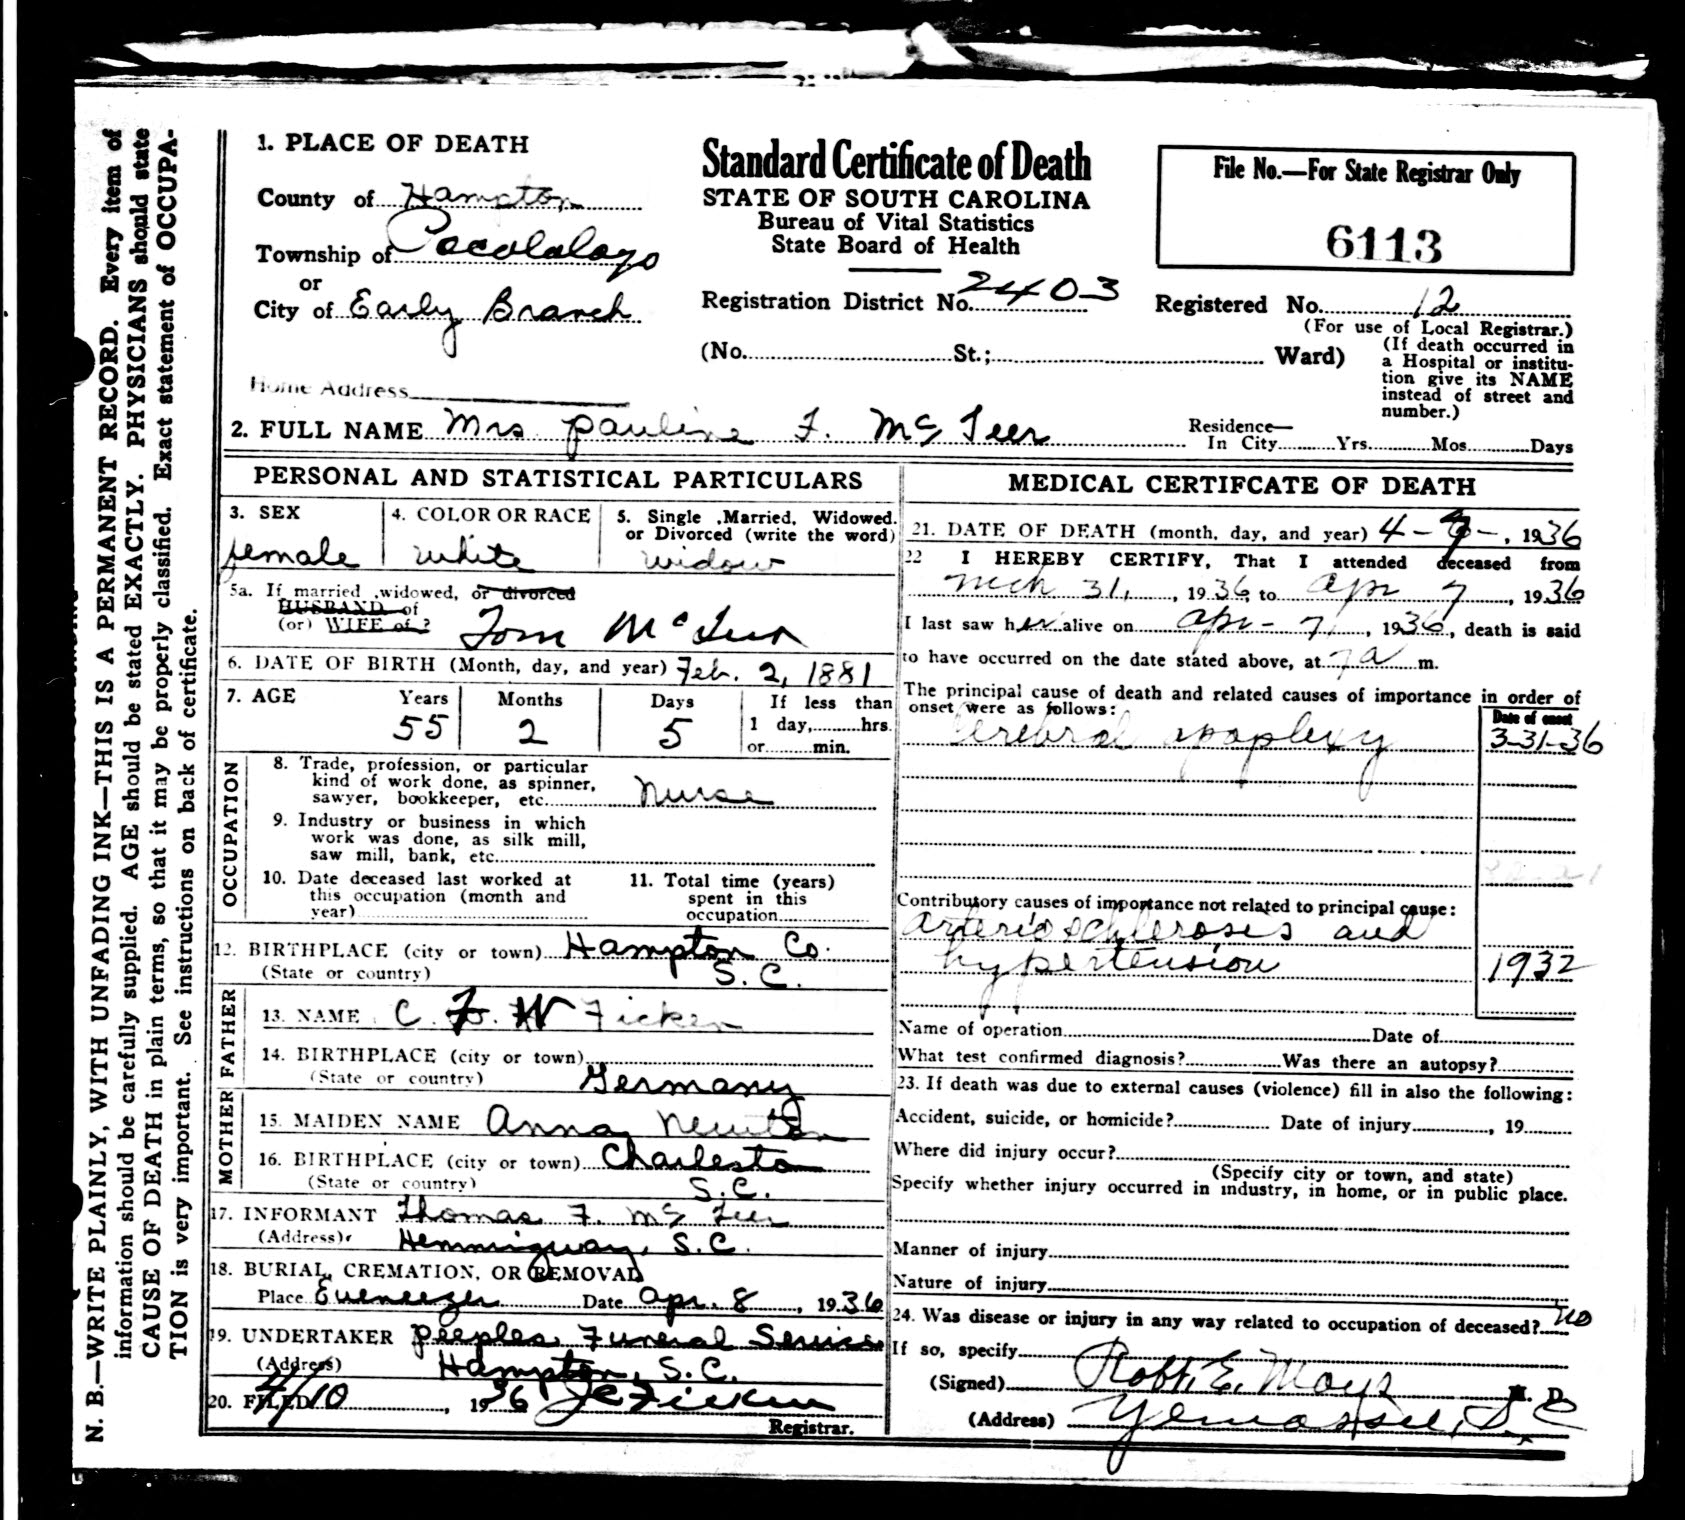 N. B.—WRITE PLAINLY, WITH UNFADING INK—THIS IS A PERMANENT RECORD. Every item of
information should be carefully supplied. AGE should be stated EXACTLY. PHYSICIANS should state
CAUSE OF DEATH in plain terms, so that it may be properly classified. Exact statement of OCCUPA-
TION is very important. See instructions on back of certificate.
Standard Certificate of Death
STATE OF SOUTH CAROLINA
Bureau of Vital Statistics
State Board of Health
File No.—For State Registrar Only
6113
1. PLACE OF DEATH
County of Hampton
Township of Pocotaligo
or
City of Early Branch
Registration District No. 2403
Registered No. 12
(For use of Local Registrar.)
(No. St.; Ward)
(If death occurred in
a Hospital or institu-
tion give its NAME
instead of street and
number.)
Home Address
2. FULL NAME Mrs Pauline F. McTeer
Residence—
In City Yrs. Mos. Days
PERSONAL AND STATISTICAL PARTICULARS
3. SEX
female
4. COLOR OR RACE
white
5. Single ,Married, Widowed.
or Divorced (write the word)
widow
5a. If married ,widowed, or divorced
HUSBAND of
(or) WIFE of ?
Tom McTeer
6. DATE OF BIRTH (Month, day, and year) Feb. 2, 1881
7. AGE Years Months Days If less than
55 2 5 1 day, hrs.
or min.
OCCUPATION
8. Trade, profession, or particular
kind of work done, as spinner,
sawyer, bookkeeper, etc. Nurse
9. Industry or business in which
work was done, as silk mill,
saw mill, bank, etc.
10. Date deceased last worked at
this occupation (month and
year)
11. Total time (years)
spent in this
occupation
12. BIRTHPLACE (city or town) Hampton Co.
(State or country) S.C.
FATHER
13. NAME C. F. W Ficken
14. BIRTHPLACE (city or town)
(State or country) Germany
MOTHER
15. MAIDEN NAME Anna Newton
16. BIRTHPLACE (city or town) Charleston
(State or country) S.C.
17. INFORMANT Thomas F. McTeer
(Address) Hemmigway, S.C.
18. BURIAL, CREMATION, OR REMOVAL
Place Eueneezer Date Apr. 8, 1936
19. UNDERTAKER Peeples Funeral Service
(Address) Hampton, S.C.
20. FILED 4/10, 1936 J C Ficken
Registrar.
MEDICAL CERTIFCATE OF DEATH
21. DATE OF DEATH (month, day, and year) 4-7-, 1936
22 I HEREBY CERTIFY, That I attended deceased from
Mch 31, , 1936, to Apr 7, 1936
I last saw her alive on Apr-7, 1936, death is said
to have occurred on the date stated above, at 7a m.
The principal cause of death and related causes of importance in order of
onset were as follows:
Date of onset
Cerebral apoplexy 3-31-36
Contributory causes of importance not related to principal cause:
arterioschlerosis and
hypertension 1932
Name of operation Date of
What test confirmed diagnosis? Was there an autopsy?
23. If death was due to external causes (violence) fill in also the following:
Accident, suicide, or homicide? Date of injury , 19
Where did injury occur?
(Specify city or town, and state)
Specify whether injury occurred in industry, in home, or in public place.
Manner of injury
Nature of injury
24. Was disease or injury in any way related to occupation of deceased? no
If so, specify
(Signed) Robt. E. Mays M. D.
(Address) Yemassee, S.C